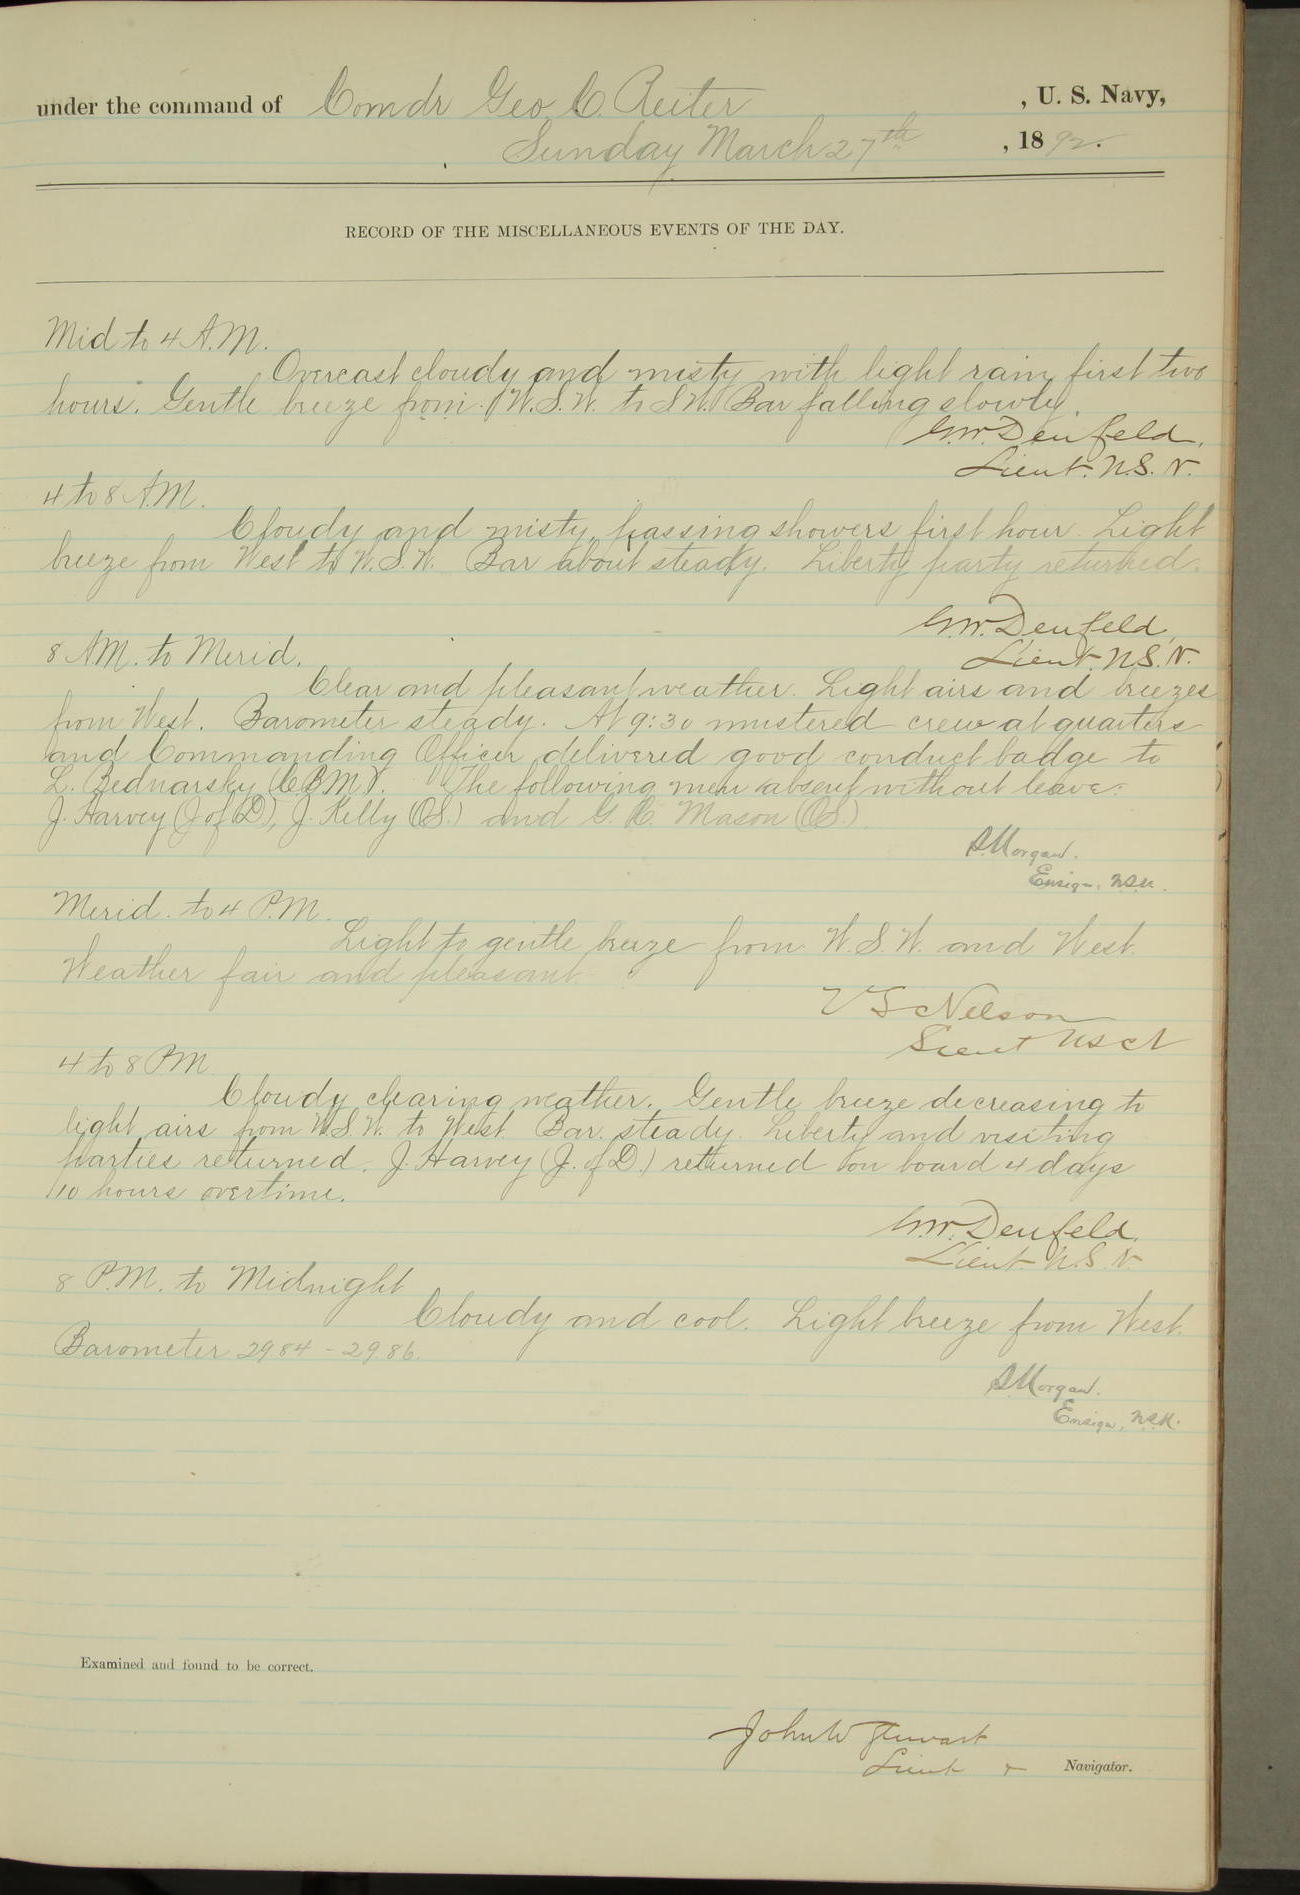 under the command of Comdr Geo. C. Reiter, U. S. Navy,
Sunday March 27th, 1892.
RECORD OF THE MISCELLANEOUS EVENTS OF THE DAY.
Mid to 4 A.M.
Overcast cloudy and misty with light rain first two
hours. Gentle breeze from W.S.W. to S.W. Bar falling slowly.
G.W. Denfeld,
Lieut. U.S.N.
4 to 8 A.M.
Cloudy and misty, passing showers first hour. Light
breeze from West to W.S.W. Bar about steady. Liberty party returned.
G.W. Denfeld,
Lieut. U.S.N.
8 A.M. to Merid.
Clear and pleasant weather. Light airs and breezes
from West. Barometer steady. At 9:30 mustered crew at quarters
and Commanding Officer delivered good conduct badge to
L. Bednarsky (C.B.M.). The following men absent without leave:
J. Harvey (J of D), J. Kelly (O.S.) and G. C. Mason (O.S.)
Morgan.
Ensign, U.S.N.
Merid. to 4 P.M.
Light to gentle breeze from W.S.W. and West.
Weather fair and pleasant.
V S Nelson
Lieut USN
4 to 8 P.M.
Cloudy clearing weather. Gentle breeze decreasing to
light airs from W.S.W. to West. Bar. steady. Liberty and visiting
parties returned. J. Harvey (J. of D.) returned on board 4 days
10 hours overtime.
G.W. Denfeld,
Lieut. U.S.N.
8 P.M. to Midnight
Cloudy and cool. Light breeze from West.
Barometer 29 84 - 29 86.
Morgan.
Ensign, U.S.N.
Examined and found to be correct.
John W Stewart
Lieut & Navigator.